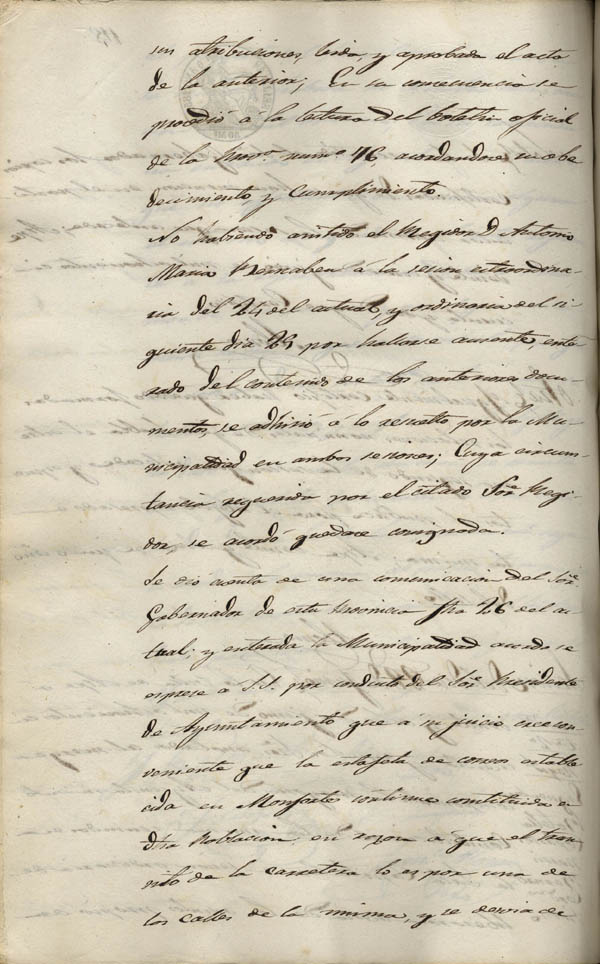 sus atribuciones, leida, y aprobada el acta
de la anterior; En su consecuencia se
procedió á la lectura del boletin oficial
de la Prova. num.o 76, acordandose su obe
decimiento y cumplimiento.
No habiendo asistido el Regidor D. Antonio
Maria Bernabeu á la sesion extraordina
ria del 24 del actual, y ordinaria del si
guiente dia 25 por hallarse ausente, ente
rado del contenido de los anteriores docu
mentos, se adhirió á lo resuelto por la Mu
nicipalidad en ambas sesiones; Cuya circuns
tancia requerida por el citado Sor. Regi
dor, se acordó quedase consignada.
Se dio cuenta de una comunicacion del Sor.
Gobernador de esta Provincia fha 26 del ac
tual; y enterada la Municipalidad acordo se
esprese a S.S. por conducto del Sor. Presidente
de Ayuntamiento que á su juicio cree con
veniente que la estafeta de correos estable
cida en Monforte continue constituida en
dha Poblacion, en razon a que el tran
sito de la carretera lo es por una de
las calles de la misma, y se desvia de